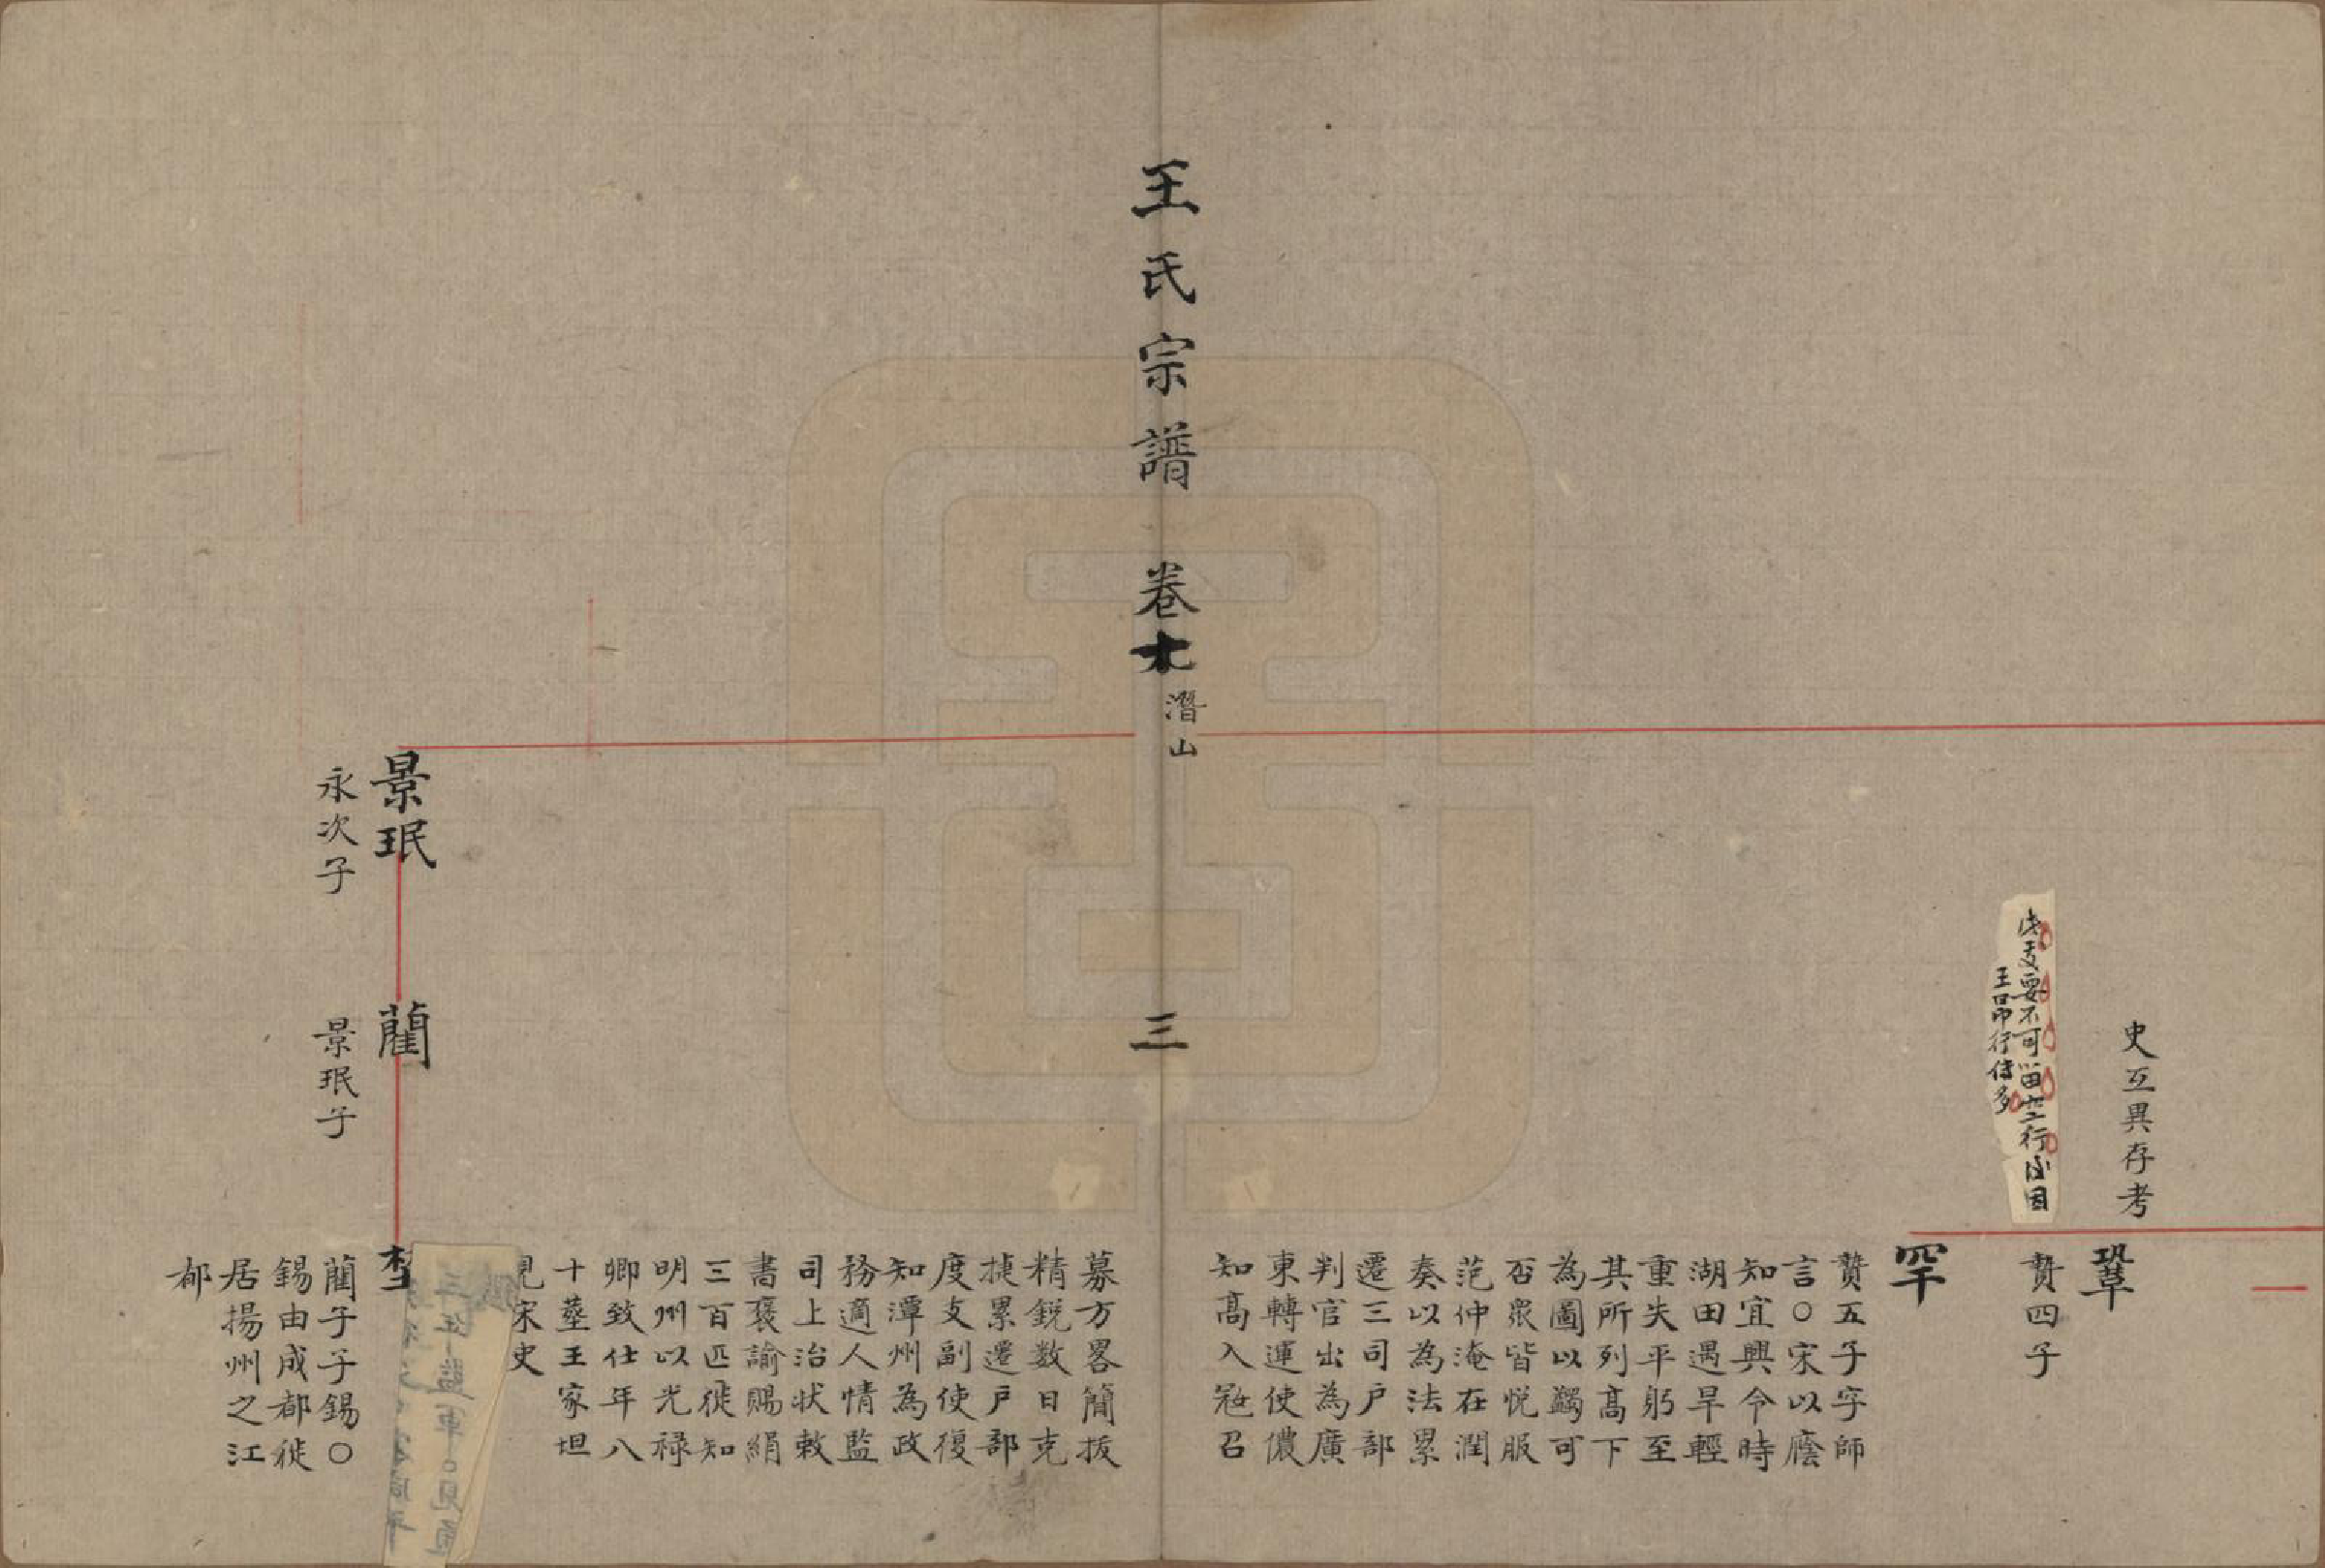 史互異存考
鞏
贄四子
罕
贄五子字師
言〇宋以廕
知宜興令時
湖田遇旱輕
重失平躬至
其所列高下
為圖以蠲可
否眾皆悦服
范仲淹在潤
奏以為法累
遷三司户部
判官出為廣
東轉運使儂
知高入寇召
王氏宗譜 卷
潛山
三
募方畧簡拔
精鋭数日克
捷累遷户部
度支副使復
知潭州為政
務適人情監
司上治状敕
書褒諭賜絹
三百匹徙知
明州以光禄
卿致仕年八
十塟王家坦
見宋史
景珉
永次子
藺
景珉子
藺子子錫〇
錫由成都徙
居揚州之江
都